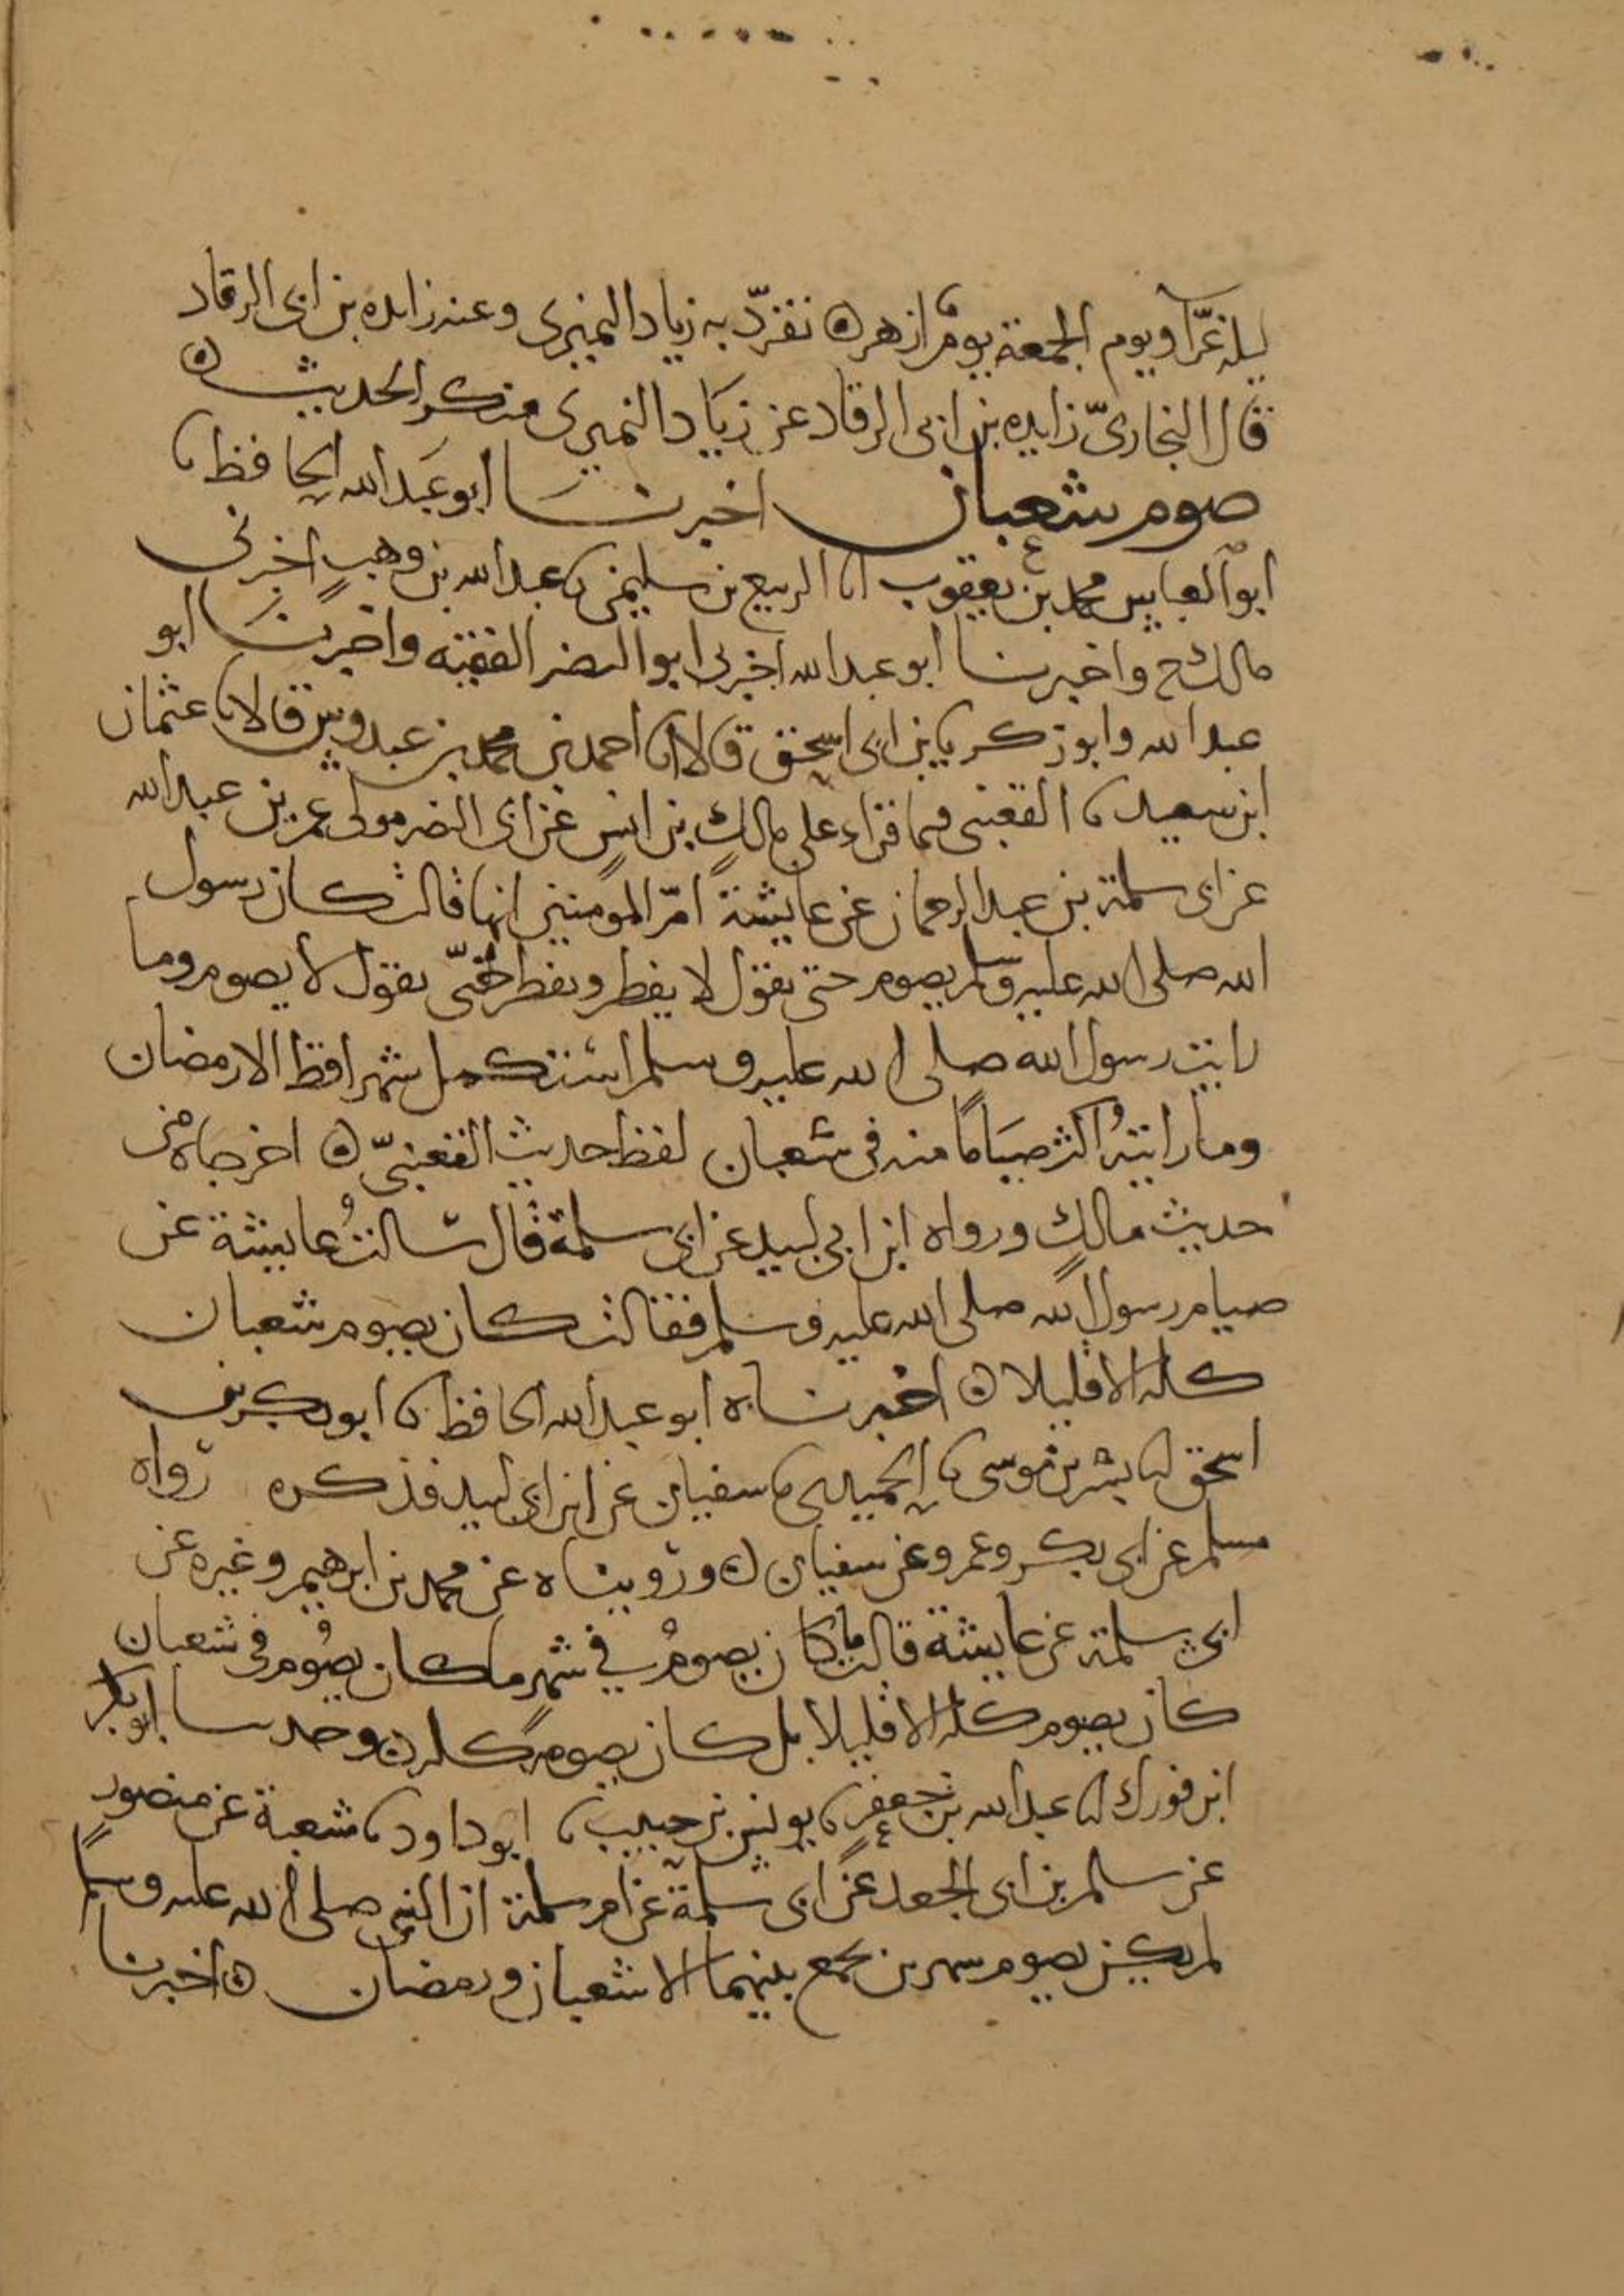 ليله غرّا ويوم الجمعة يوم ازهر ٥ تفرّد به زياد النميري وعنه زايده بن ابى الرقاد
قال البخاريّ زايده بن ابى الرقاد عن زياد النميرى منكر الحديث ٥
صوم شعبان اخبرنا ابو عبد الله الحافظ نا
ابو العباس محمد بن يعقوب انا الربيع بن سليمن نا عبد الله بن وهب اخبرنى
مالك ح واخبرنا ابو عبد الله اخبرنى ابو النضر الفقيه واخبرنا ابو
عبد الله وابو زكريا بن ابى اسحق قالا انا احمد بن محمد بن عبدوس قالا نا عثمان
ابن سعيد نا القعنبى فيما قراء على مالك بن انس عن ابى النضر مولى عمر بن عبيد الله
عن ابى سلمة بن عبد الرحمان عن عايشة امّ المومنين انها قالت كان رسول
الله صلى الله عليه وسلم يصوم حتى نقول لا يفطر ويفطر حتىّ نقول لا يصوم وما
رايت رسول الله صلى الله عليه وسلم استكمل شهرا قط الا رمضان
وما رايتهُ اكثر صيَامًا منه فى شعبان لفظ حديث القعنبىّ ٥ اخرجاه من
حديث مالك ورواه ابن ابى لبيد عن ابى سلمة قال سالتُ عايشة عن
صيام رسول الله صلى الله عليه وسلم فقالت كان يصوم شعبان
كله الا قليلا ٥ اخبرناه ابو عبد الله الحافظ نا ابو بكر بن
اسحق انا بشر بن موسى نا الحميدى نا سفيان عن ابن ابى لبيد فذكره رواه
مسلم عن ابى بكر وعمرو عن سفيان ٥ ورويناه عن محمد بن ابرهيم وغيره عن
ابى سلمة عن عايشة قالت ما كان يصومُ في شهر ما كان يصُوم فى شعبان
كان يصوم كله الا قليلا بل كان يصومه كله ٥ وحدثنا ابو بكر
ابن فورك انا عبد الله بن جعفر نا يونس بن حبيب نا ابو داود نا شعبة عن منصور
عن سالم بن ابى الجعد عن ابى سلمة عن ام سلمة ان النبى صلى الله عليه وسلم
لم يكن يصوم شهرين يجمع بينهما الا شعبان ورمضان ٥ اخبرنا